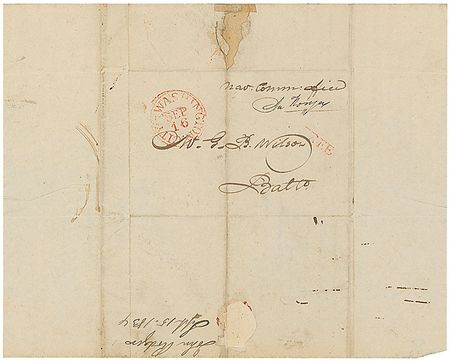 Nav. Comm. Office
Jn Rodgers
WASHINGTON
SEP
16
G. B. Wilson
Balto.
John Rodgers
Sept. 15. 1834